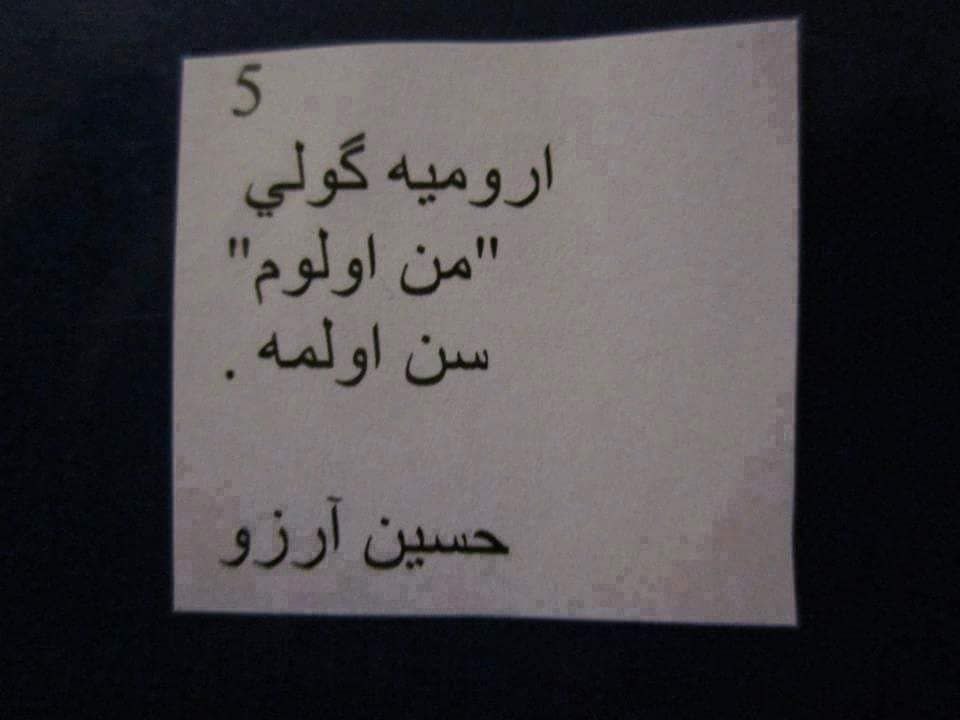 5
اروميه گولي
"من اولوم"
سن اولمه .
حسين آرزو